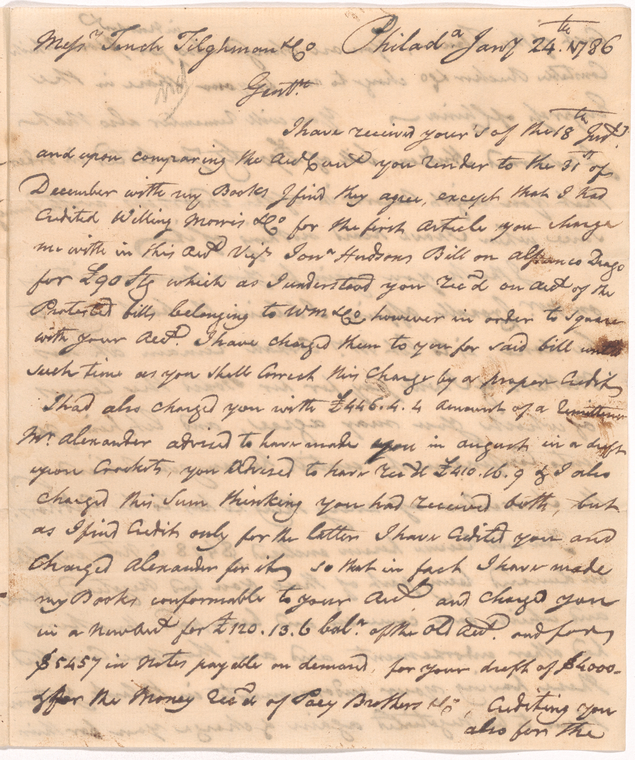 Messrs Tench Tilghman & Co Philada Jany 24th 1786
Gentn
I have received your's of the 18th Inst.
and upon comparing the Acct Curt you render to the 31st of
December with my Books I find they agree, except that I had
Credited Willing Morris & Co for the first Article you charge
me with in this Acct Vizt Jona Hudsons Bill on
for £90 Stg which as I understood you rec'd on Acct of the
Protested bills belonging to WM & Co however in order to square
with your Acct. I have charged them to you for said bill until
such time as you shall Correct this Charge by a proper Credit
I had also charged you with £446.4.4 amount of a Remittance
Mr. Alexander advised to have made you in august in a draft
upon Crockets, you advised to have rec'd £410.16.9 & I also
charged this Sum thinking you had received both, but
as I find Credit only for the latter I have Credited you and
Charged Alexander for it, so that in fact I have made
my Books conformable to your Acct. and charged you
in a New Acct for £120.13.6 bala. of the Old Acct. and for
$5457 in Notes payable on demand, for your draft of $4000
& for the Money rec'd of Pacy Brothers & Co, Crediting you
also for the